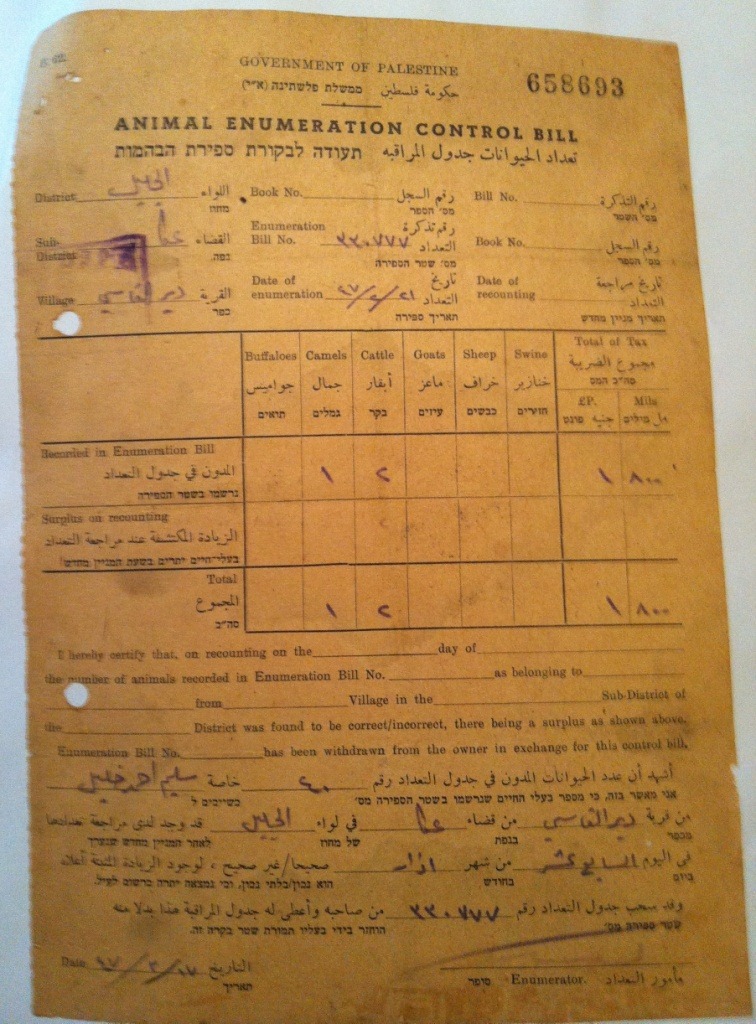 GOVERNMENT OF PALESTINE
حكومة فلسطين ממשלת פלשתינה (א"י)
658693
ANIMAL ENUMERATION CONTROL BILL
تعداد الحيوانات جدول المراقبه תעודה לבקורת ספירת הבהמות
District الجليل اللواء מחוז Book No. رقم السجل מס' הספר Bill No. رقم التذكرة מס' השטר
Sub-District عكا القضاء נפה Enumeration Bill No. ٣٣٠٧٧٧ رقم تذكرة التعداد מס' שטר הספירה Book No. رقم السجل מס' הספר
Village دير القاسي القرية כפר Date of enumeration ٤٧/٢/٢١ تاريخ التعداد תאריך ספירה Date of recounting تاريخ مراجعة التعداد תאריך מניין מחדש
Buffaloes Camels Cattle Goats Sheep Swine Total of Tax
جواميس جمال أبقار ماعز خراف خنازير مجموع الضريبة
תואים גמלים בקר עיזים כבשים חזירים סה"כ המס
£P. Mils
جنيه مل
פונט מילים
Recorded in Enumeration Bill
المدون في جدول التعداد ١ ٢ ١ ٨٠٠
נרשמו בשטר הספירה
Surplus on recounting
الزيادة المكتشفة عند مراجعة التعداد
בעלי-חיים יתרים בשעת המניין מחדש
Total
المجموع ١ ٢ ١ ٨٠٠
סה"כ
I hereby certify that, on recounting on the day of
the number of animals recorded in Enumeration Bill No. as belonging to
from Village in the Sub-District of
the District was found to be correct/incorrect, there being a surplus as shown above.
Enumeration Bill No. has been withdrawn from the owner in exchange for this control bill.
أشهد أن عدد الحيوانات المدون في جدول التعداد رقم خاصة سليم احمد خليل
אני מאשר בזה, כי מספר בעלי החיים שנרשמו בשטר הספירה מס' כשייכים ל
من قرية دير القاسي من قضاء عكا في لواء الجليل قد وجد لدى مراجعة تعدادها
מכפר בנפת של מחוז לאחר המניין מחדש שנערך
في اليوم السابع عشر من شهر اذار صحيحا/غير صحيح ، لوجود الزيادة المبينة أعلاه
ביום בחודש הוא נכון/בלתי נכון, וכי נמצאה יתרה כרשום לעיל.
وقد سحب جدول التعداد رقم ٣٣٠٧٧٧ من صاحبه وأعطي له جدول المراقبة هذا بدلا منه
שטר ספירה מס' הוחזר בידי בעליו תמורת שטר בקרה זה.
Date ٤٧/٣/١٧ التاريخ תאריך
Enumerator. مأمور التعداد סופר